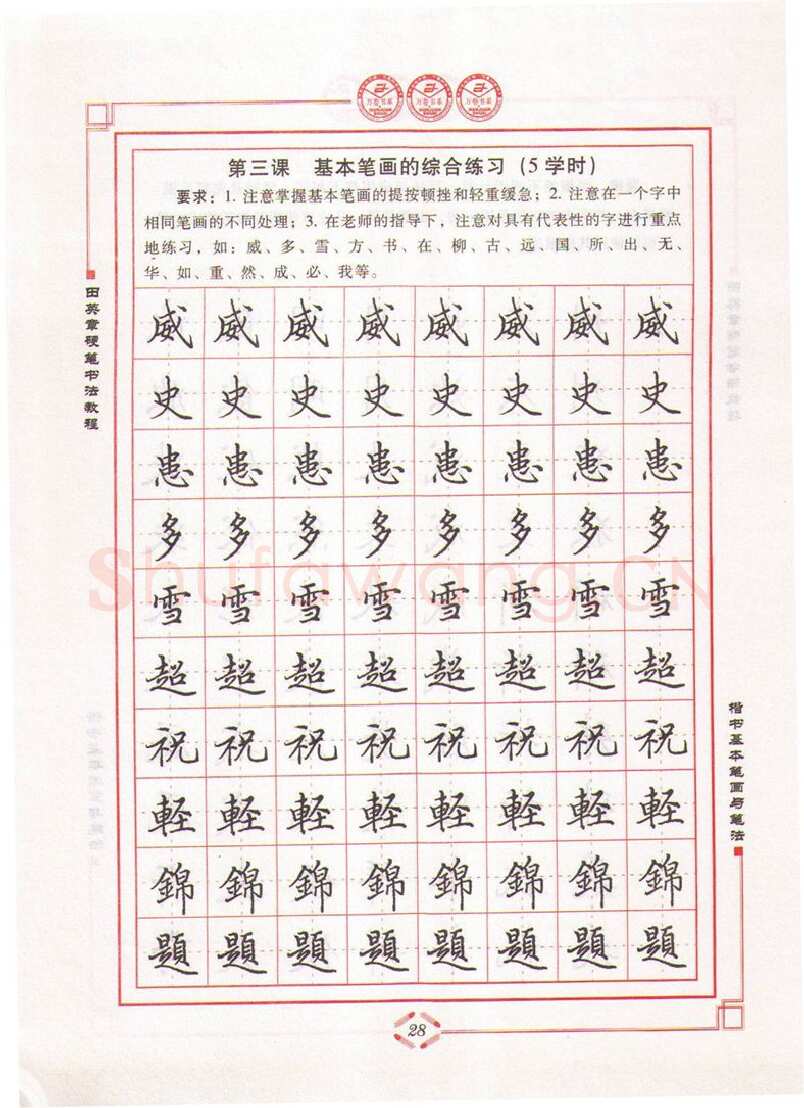 万卷书系 万卷书系 万卷书系
第三课 基本笔画的综合练习（5学时）
要求：1. 注意掌握基本笔画的提按顿挫和轻重缓急；2. 注意在一个字中
相同笔画的不同处理；3. 在老师的指导下，注意对具有代表性的字进行重点
地练习，如：威、多、雪、方、书、在、柳、古、远、国、所、出、无、
华、如、重、然、成、必、我等。
田英章硬笔书法教程
威威威威威威威威
史史史史史史史史
患患患患患患患患
多多多多多多多多
雪雪雪雪雪雪雪雪
Shufawang.CN
超超超超超超超超
祝祝祝祝祝祝祝祝
輕輕輕輕輕輕輕輕
錦錦錦錦錦錦錦錦
題題題題題題題題
楷书基本笔画与笔法
28